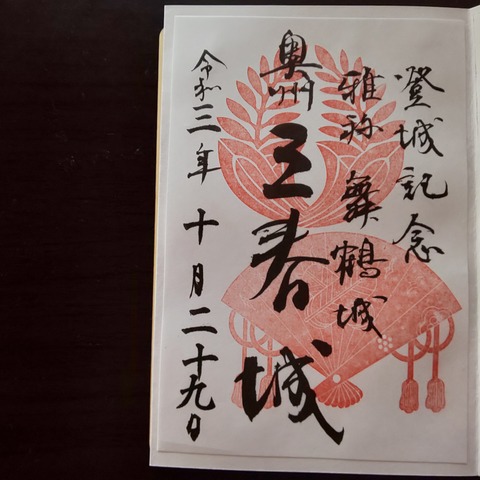 登城記念
雅称 舞鶴城
奥州
三春城
令和三年 十月二十九日